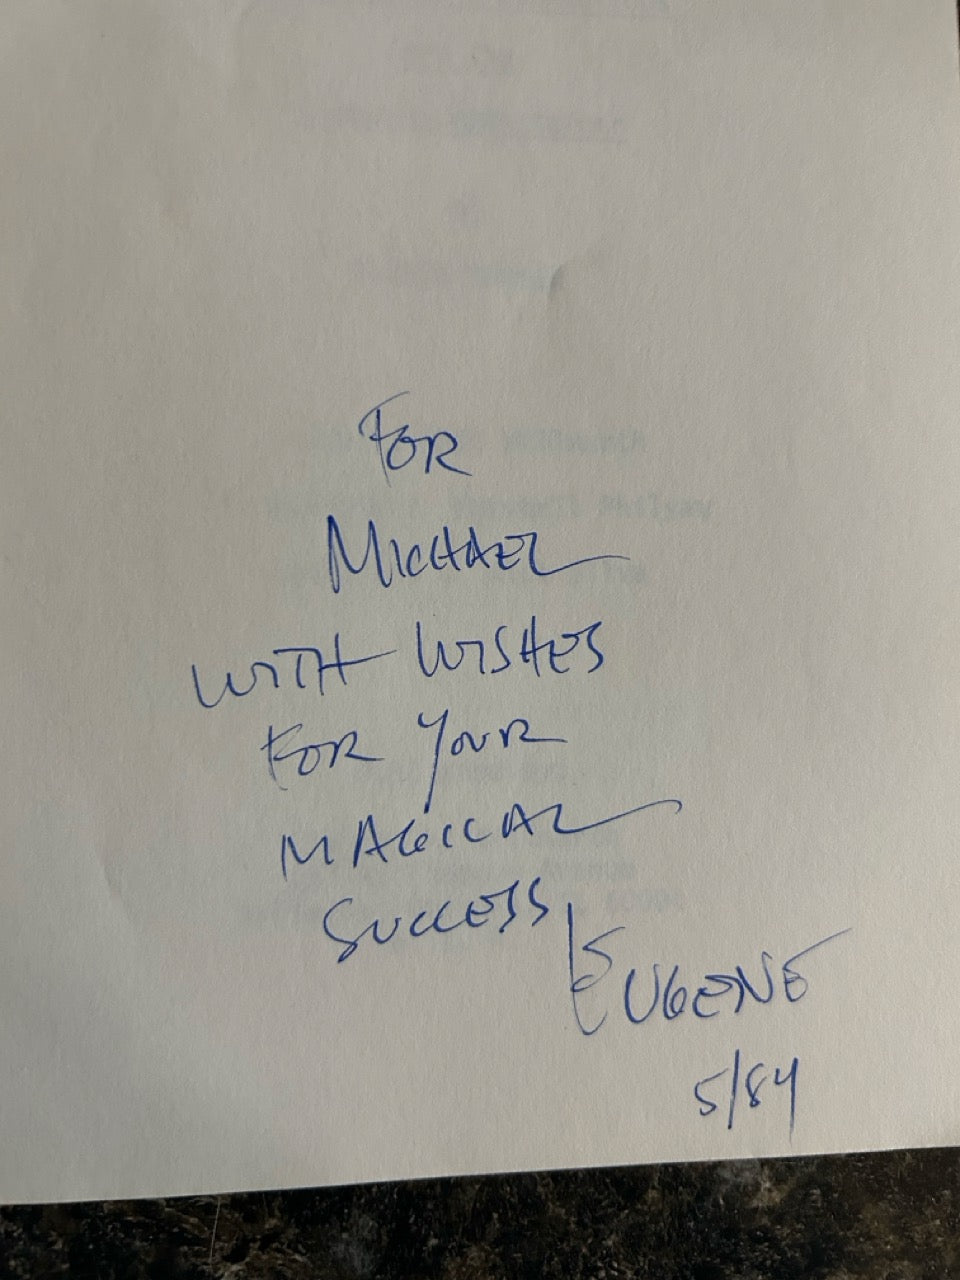 FOR
MICHAEL
WITH WISHES
FOR YOUR
MAGICAL
SUCCESS
EUGENE
5/84